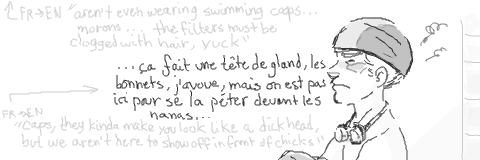 FR→EN "aren't even wearing swimming caps...
morons... the filters must be
clogged with hair, yuck"
...ça fait une tête de gland, les
bonnets, j'avoue, mais on est pas
ici pour se la péter devant les
nanas...
FR→EN
"Caps, they kinda make you look like a dickhead,
but we aren't here to show off in front of chicks"